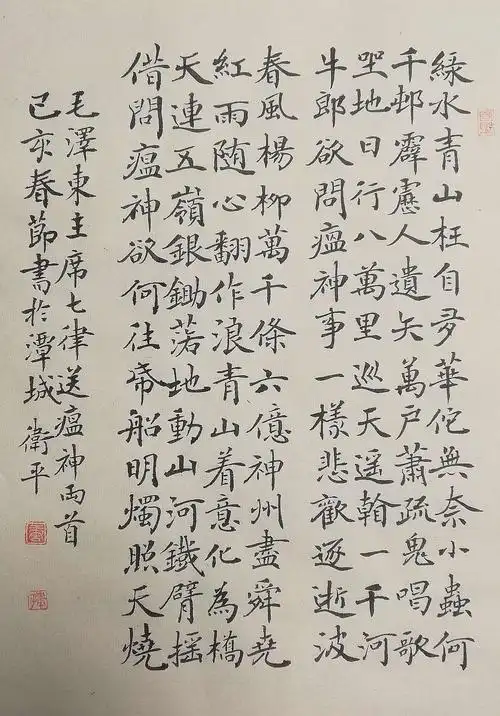 綠水青山枉自多華佗無奈小蟲何
千邨霹人遺矢萬户蕭疏鬼唱歌
坐地日行八萬里巡天遥翰一千河
牛郎欲問瘟神事一樣悲歡逐逝波
春風楊柳萬千條六億神州盡舜堯
紅雨随心翻作浪青山着意化為橋
天連五嶺銀鋤落地動山河鐵臂摇
借問瘟神欲何往帋船明燭照天燒
毛澤東主席七律送瘟神兩首
己亥春節書於潭城 衛平